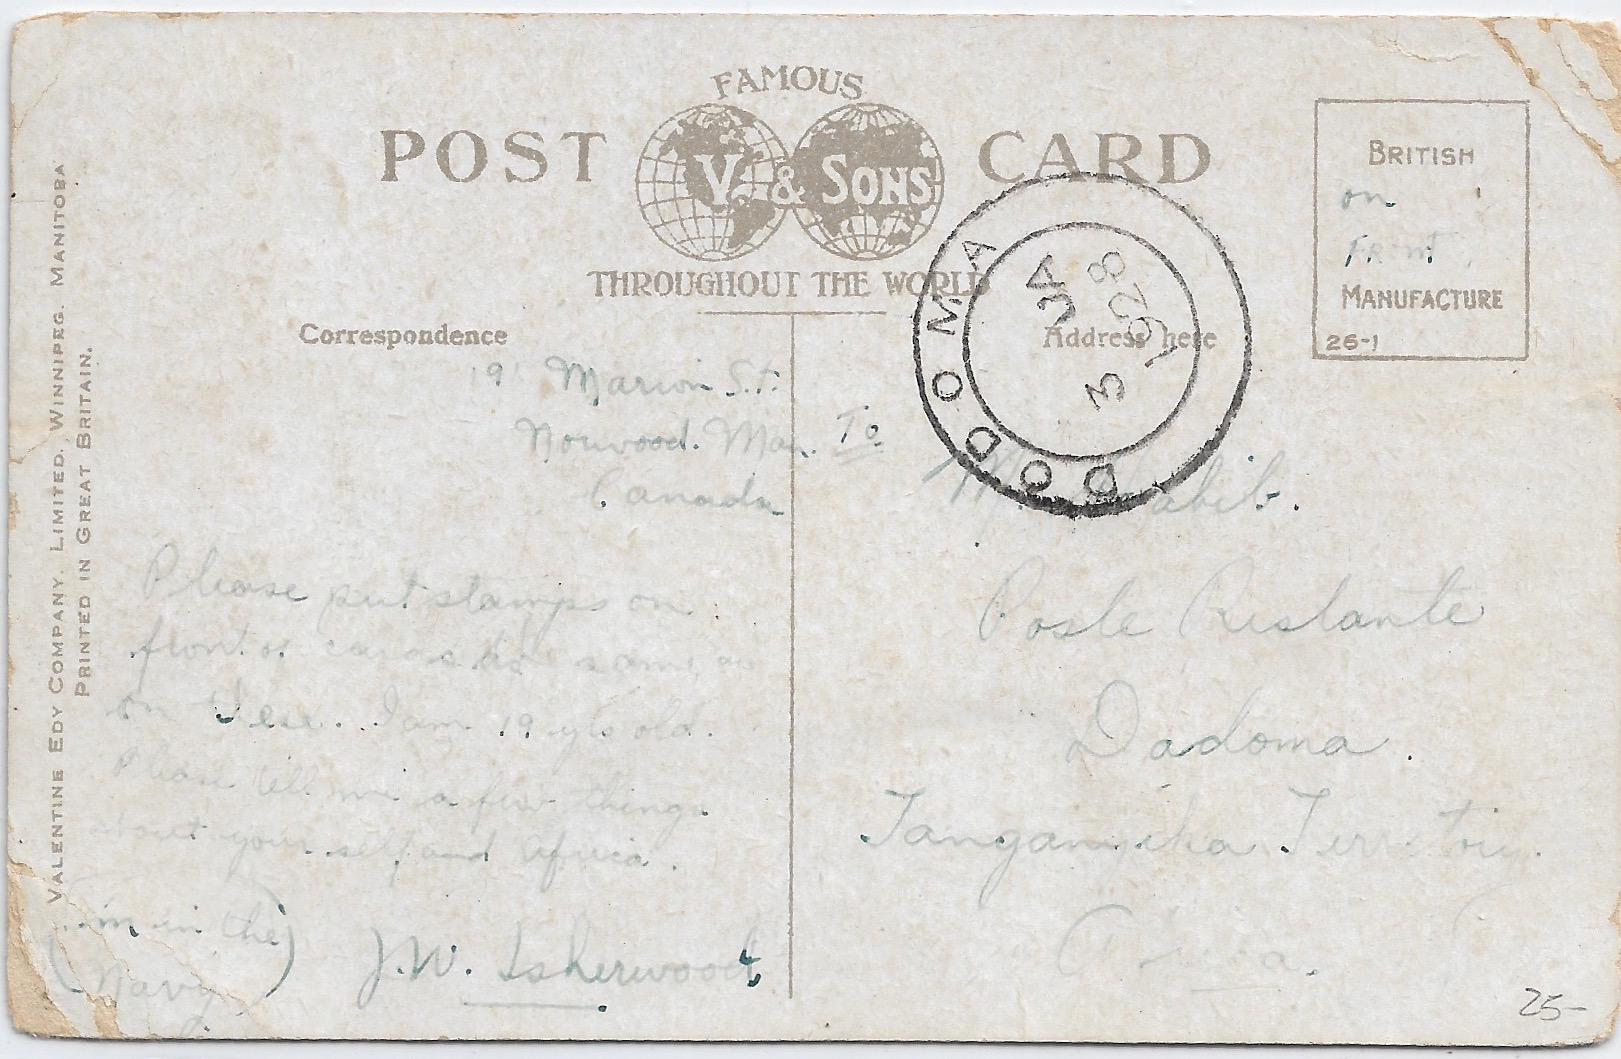 FAMOUS
POST V. & SONS CARD
THROUGHOUT THE WORLD
Correspondence
Address here
BRITISH
on
FRONT
MANUFACTURE
26-1
DODOMA
3 JA
1928
VALENTINE EDY COMPANY, LIMITED, WINNIPEG, MANITOBA
PRINTED IN GREAT BRITAIN.
19 Marion St.
Norwood. Man.
Canada
Please put stamps on
front of cards same as
on these. I am 19 yrs old.
Please tell me a few things
about your self and Africa.
(I'm in the
Navy)
J.W. Isherwood
To
M. Habib.
Poste Restante
Dadoma.
Tanganyika Territory.
Africa.
25-